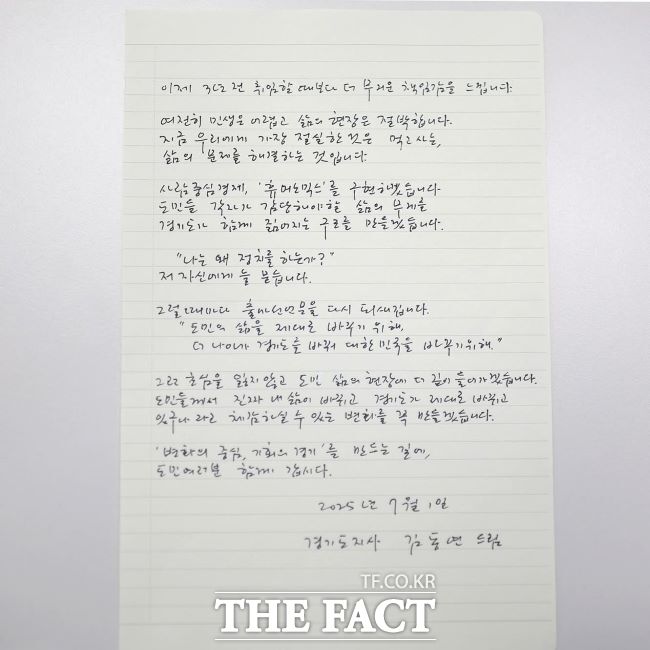 이제 3년 전 취임할 때보다 더 무거운 책임감을 느낍니다.
여전히 민생은 어렵고 삶의 현장은 절박합니다.
지금 우리에게 가장 절실한 것은 먹고 사는,
삶의 문제를 해결하는 것입니다.
사람중심경제, '휴머노믹스'를 구현하겠습니다
도민들 각자가 감당해야 할 삶의 무게를
경기도가 함께 짊어지는 구조를 만들겠습니다.
"나는 왜 정치를 하는가?"
저 자신에게 늘 묻습니다.
그럴 때마다 출마선언문을 다시 되새깁니다.
"도민의 삶을 제대로 바꾸기 위해,
더 나아가 경기도를 바꿔 대한민국을 바꾸기 위해."
그 초심을 잃지 않고 도민 삶의 현장에 더 깊이 들어가겠습니다.
도민들께서 진짜 내 삶이 바뀌고 경기도가 제대로 바뀌고
있구나 라고 체감하실 수 있는 변화를 꼭 만들겠습니다.
'변화의 중심, 기회의 경기'를 만드는 길에,
도민 여러분 함께 갑시다.
2025년 7월 1일
경기도지사 김동연 드림
TF.CO.KR
THE FACT